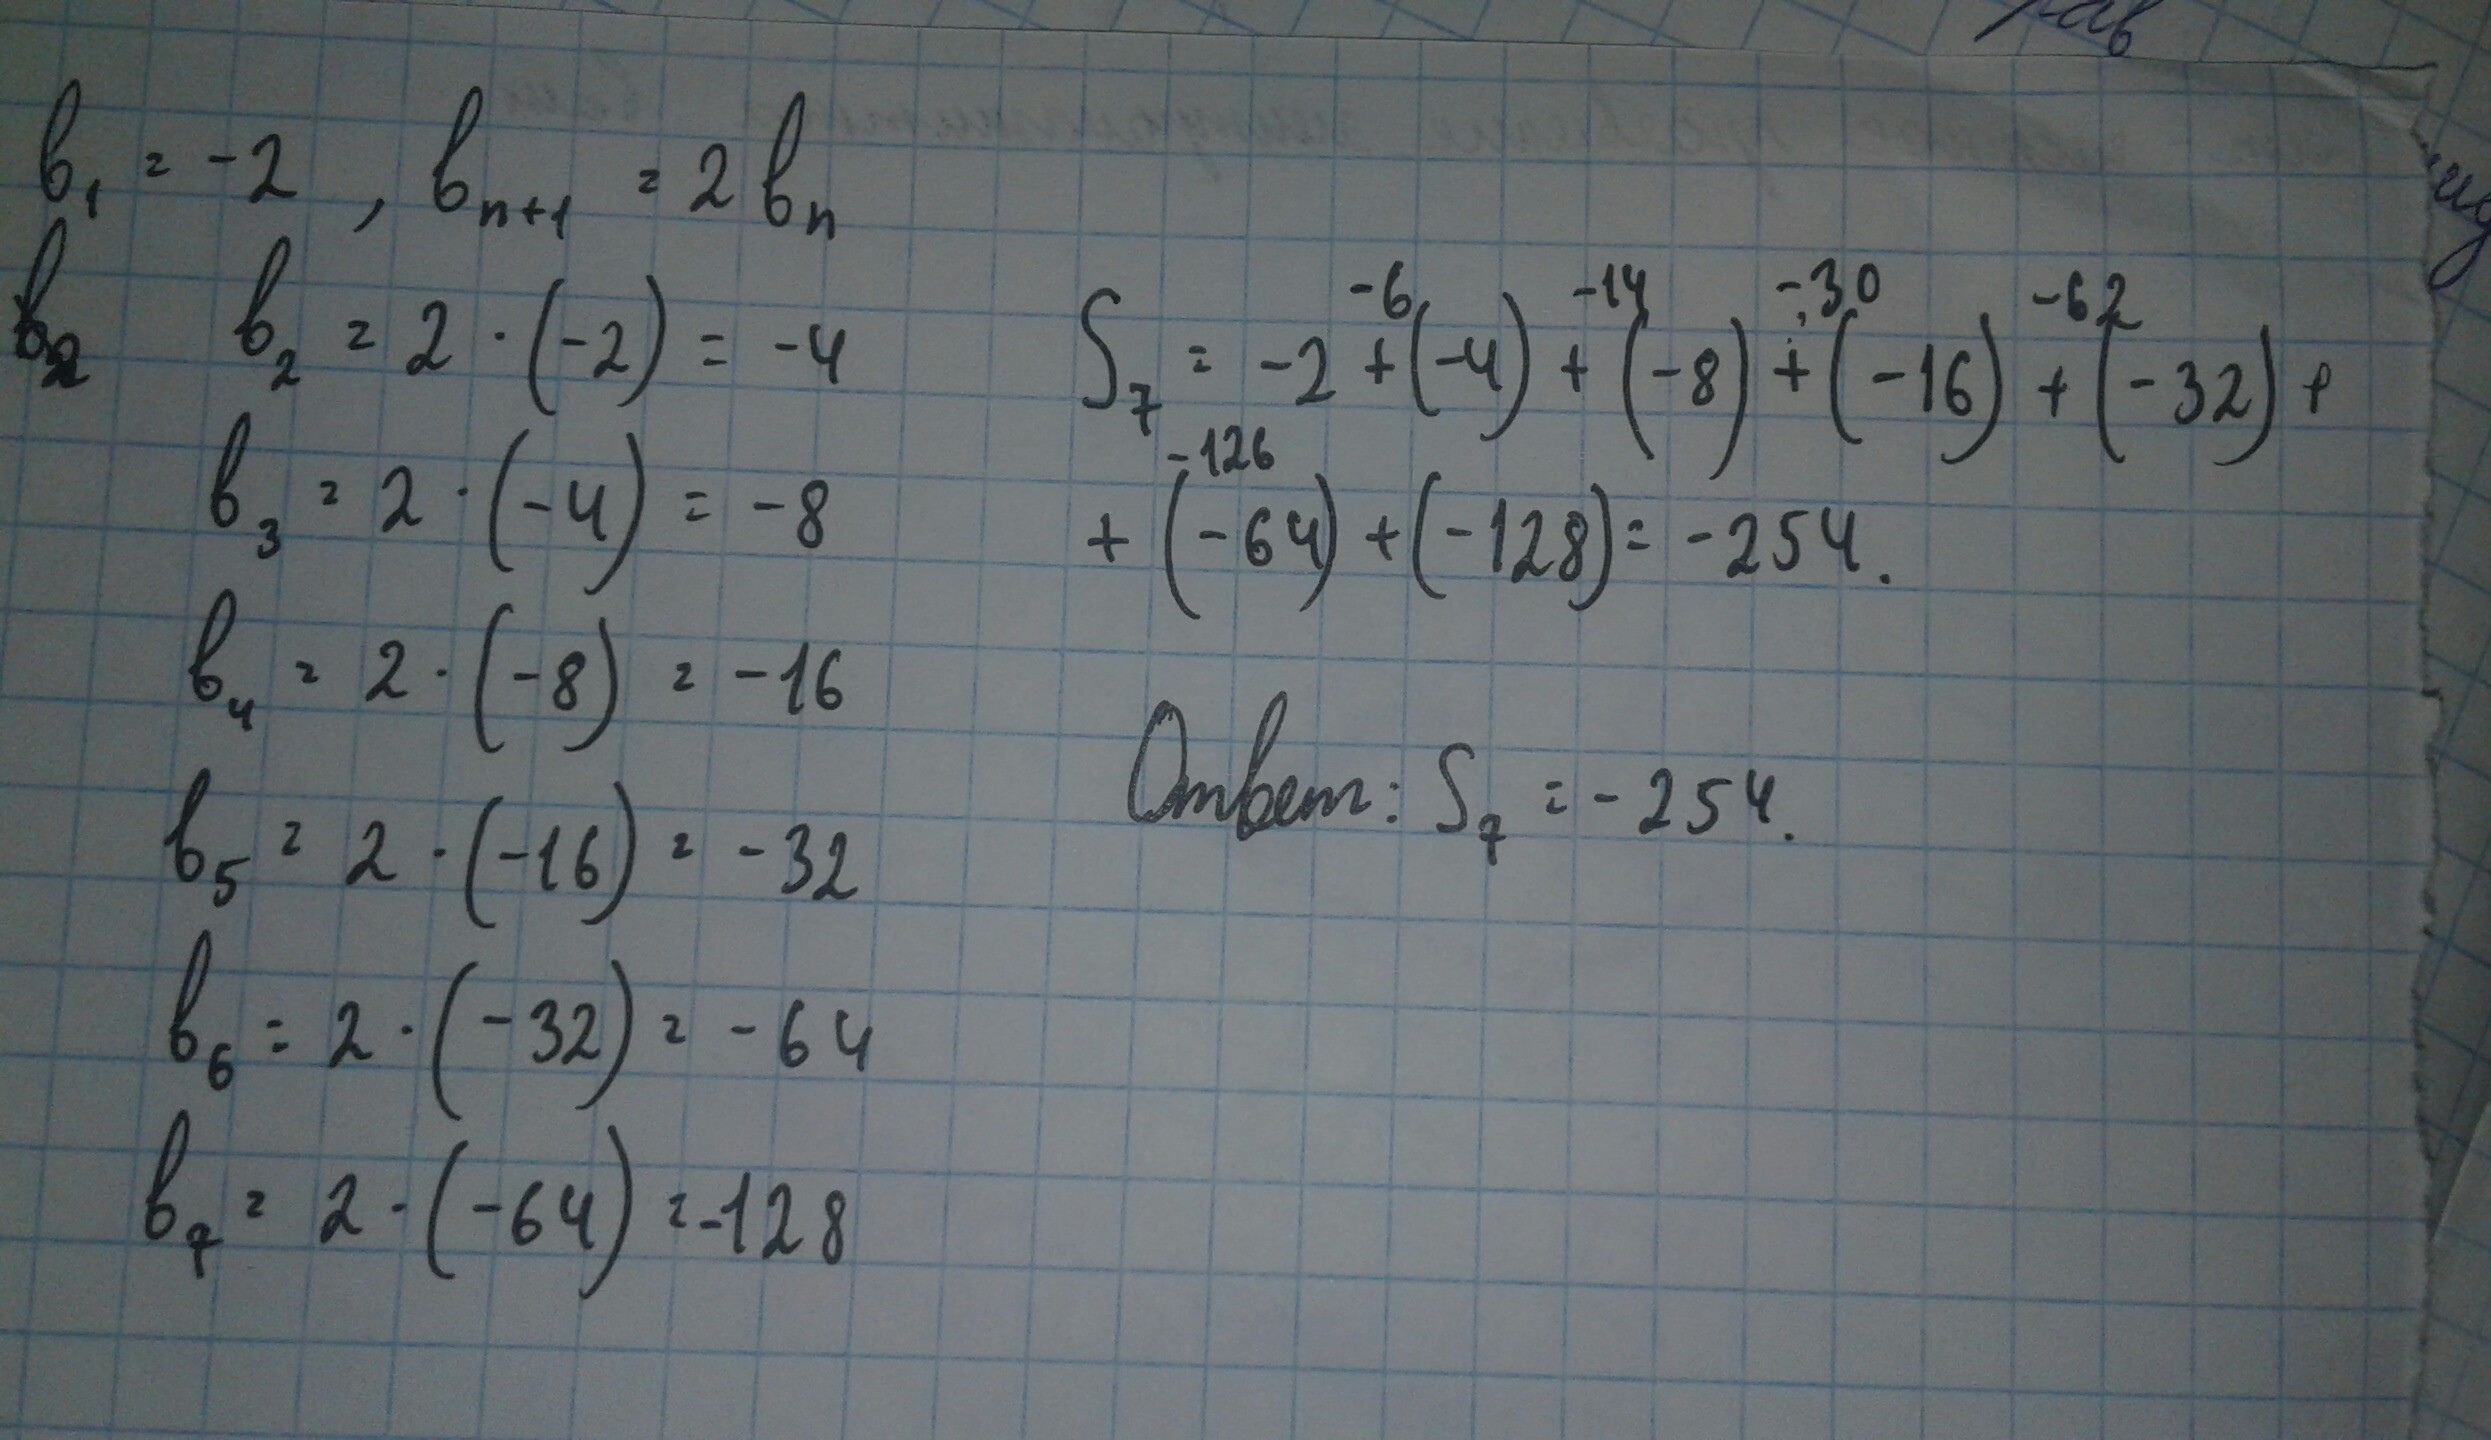 рав
b₁ = -2 , bₙ₊₁ = 2 bₙ
b₂ b₂ = 2 · (-2) = -4
b₃ = 2 · (-4) = -8
b₄ = 2 · (-8) = -16
b₅ = 2 · (-16) = -32
b₆ = 2 · (-32) = -64
b₇ = 2 · (-64) = -128
-6 -14 -30 -62
S₇ = -2 + (-4) + (-8) + (-16) + (-32) +
-126
+ (-64) + (-128) = -254.
Ответ: S₇ = -254.